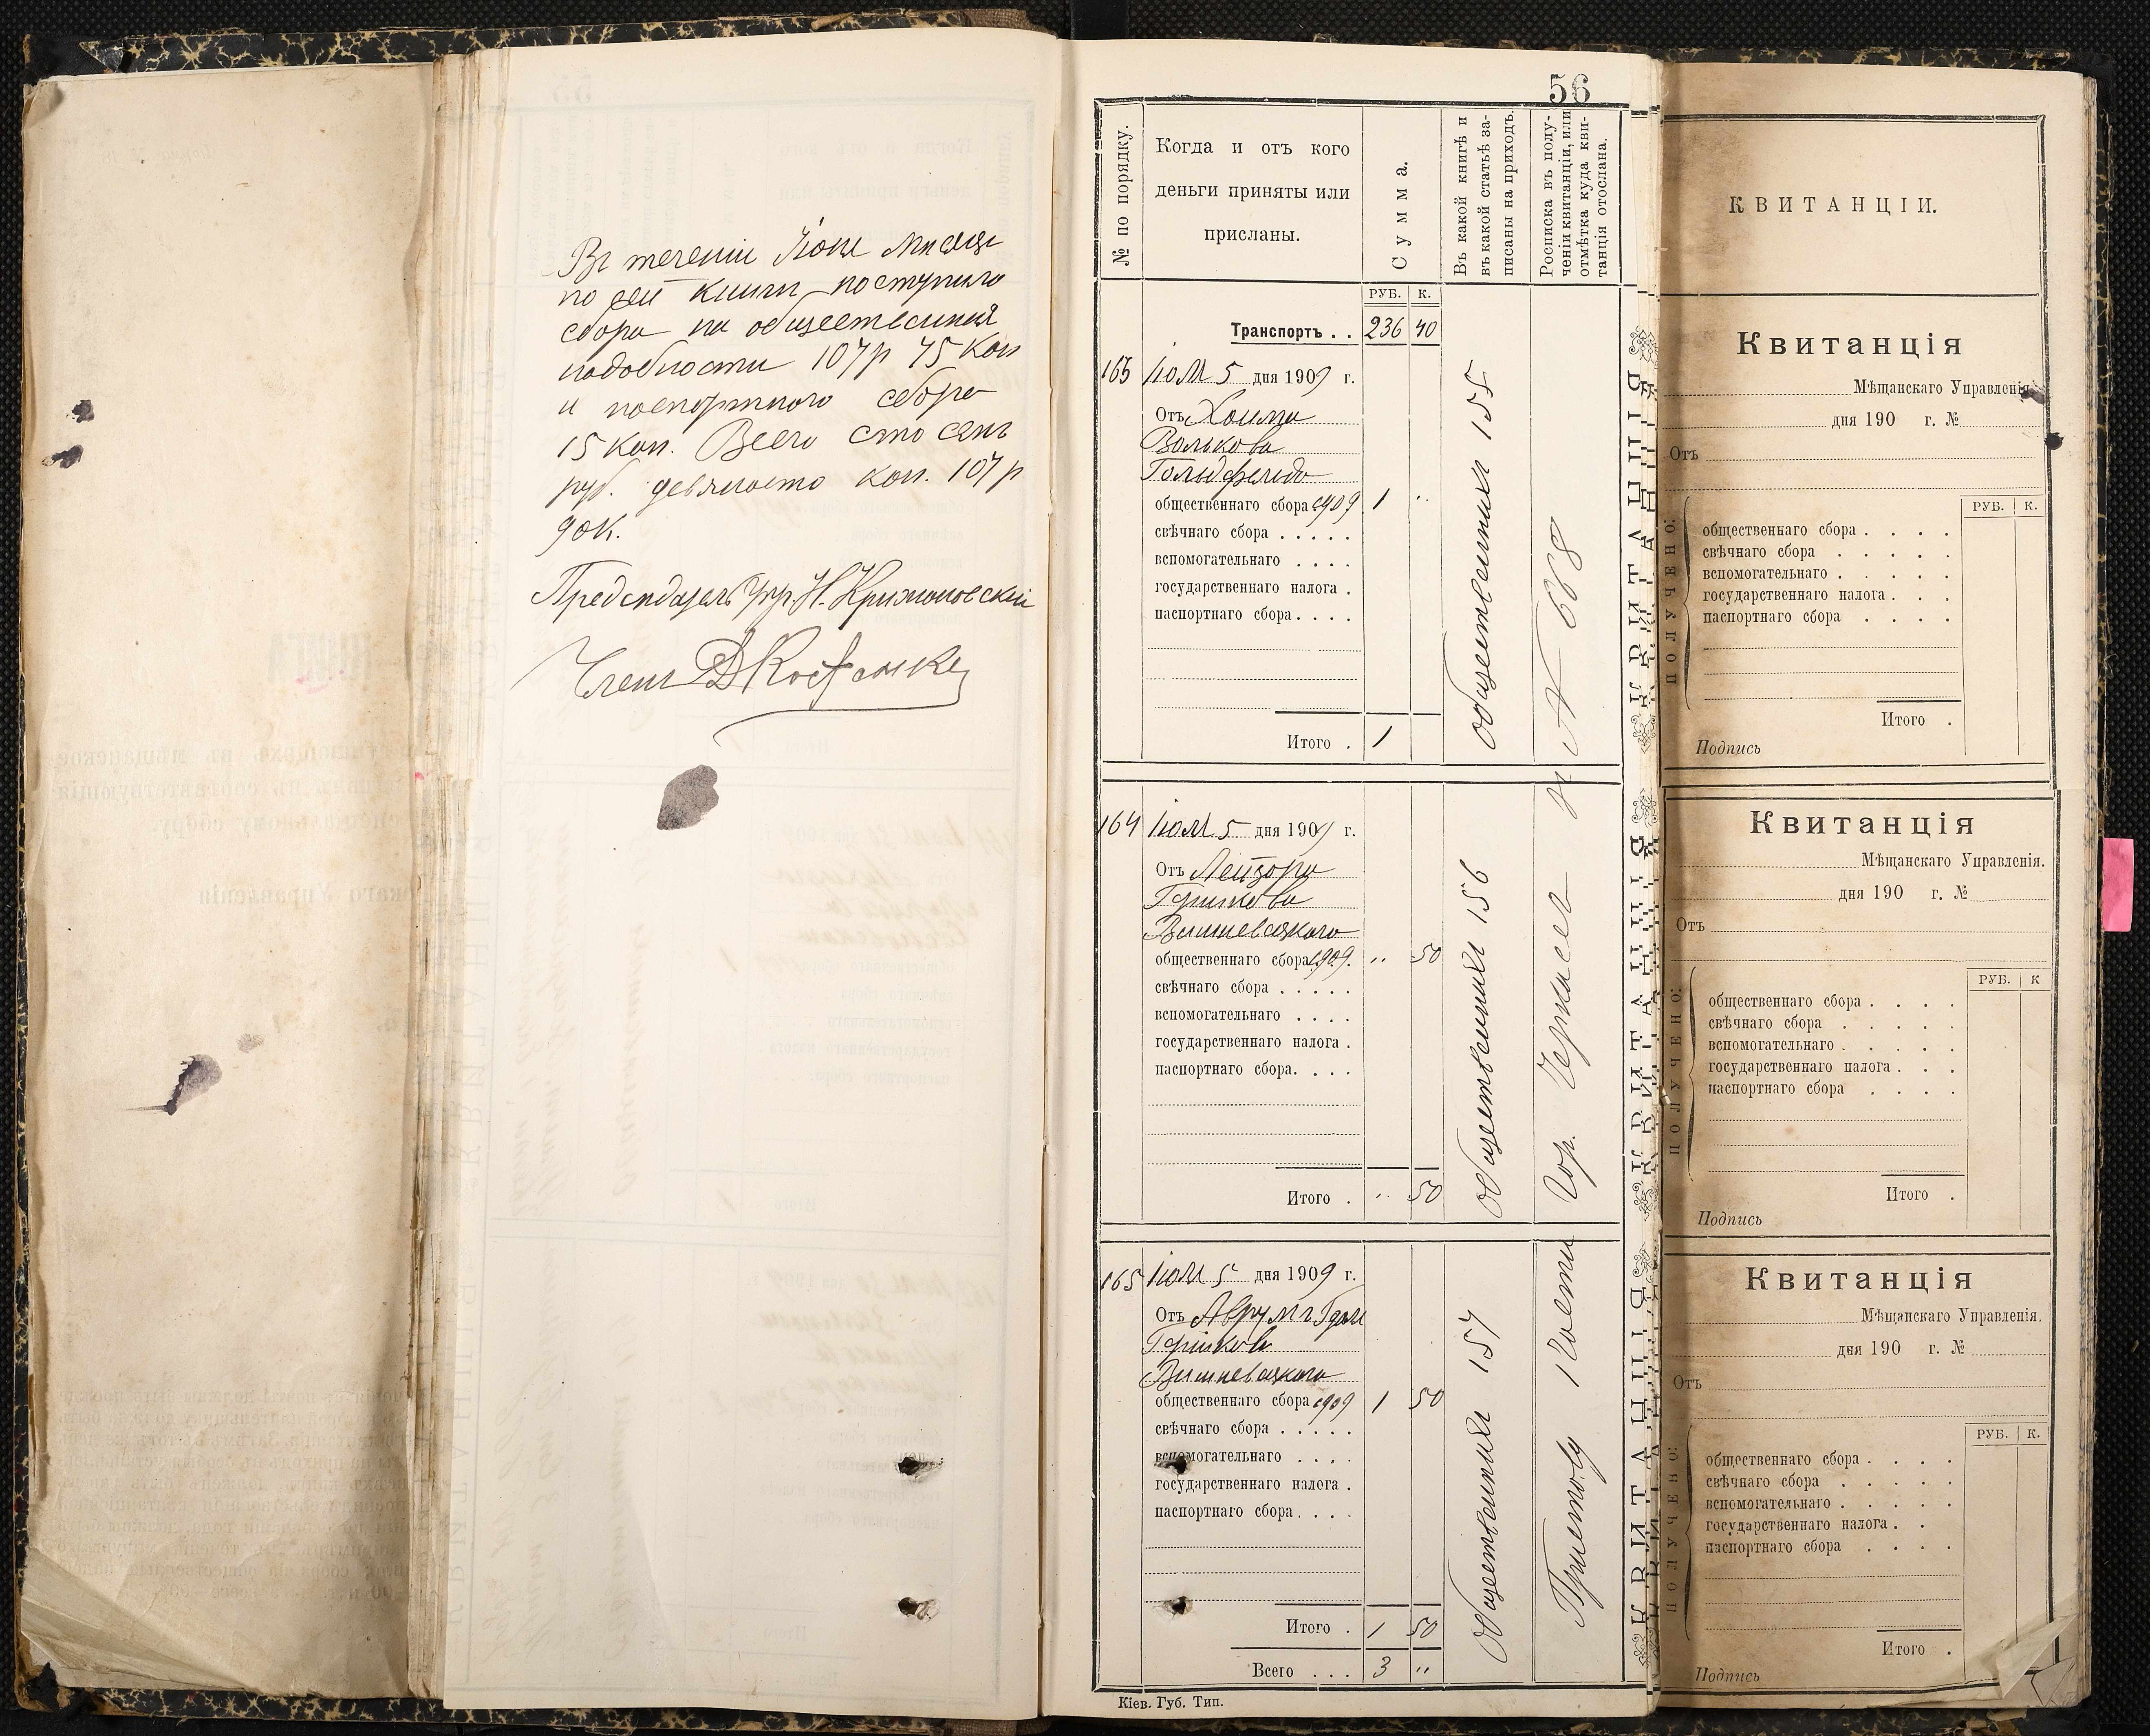 Въ теченіи Іюня мѣсяця
по сей книги поступило
сбора на общественныя
надобности 107 р 75 коп
и паспортнаго сбора
15 коп. Всего сто семь
руб. девяносто коп. 107 р
90 к.
Предсѣдатель
Членъ
56
№ по порядку.
Когда и отъ кого
деньги приняты или
присланы.
Сумма.
Въ какой книгѣ и
въ какой статьѣ за-
писаны на приходъ.
Росписка въ полу-
ченіи квитанціи, или
отмѣтка куда кви-
танція отослана.
РУБ. К.
Транспортъ . . 236 40
163 Іюля 5 дня 1909 г.
Отъ Хаима
Волькова
Гольдфельда
общественнаго сбора 1909 1 "
свѣчнаго сбора . . . . .
вспомогательнаго . . . .
государственнаго налога .
паспортнаго сбора . . . .
Итого . 1
общественныя 155
№ 668
164 Іюля 5 дня 1909 г.
Отъ Лейзора
Гершкова
Вишневецкаго
общественнаго сбора 1909. " 50
свѣчнаго сбора . . . . .
вспомогательнаго . . . .
государственнаго налога .
паспортнаго сбора. . . .
Итого . " 50
общественныя 156
Гор. Черкассъ
165 Іюля 5 дня 1909 г.
Отъ Аврумъ
Гершкова
Вишневецкаго
общественнаго сбора 1909 1 50
свѣчнаго сбора . . . . .
вспомогательнаго . . . .
государственнаго налога .
паспортнаго сбора . . . .
Итого . 1 50
Всего . . . 3 "
общественныя 157
Приставу части
Кіев. Губ. Тип.
КВИТАНЦІИ.
Квитанція
Мѣщанскаго Управленія.
дня 190 г. №
Отъ
РУБ. К.
ПОЛУЧЕНО:
общественнаго сбора . . . .
свѣчнаго сбора . . . . .
вспомогательнаго . . . . .
государственнаго налога . . .
паспортнаго сбора . . . .
Итого .
Подпись
Квитанція
Мѣщанскаго Управленія.
дня 190 г. №
Отъ
РУБ. К
ПОЛУЧЕНО:
общественнаго сбора . . . .
свѣчнаго сбора . . . . .
вспомогательнаго . . . . .
государственнаго налога . . .
паспортнаго сбора . . . .
Итого .
Подпись
Квитанція
Мѣщанскаго Управленія.
дня 190 г. №
Отъ
РУБ. К.
ПОЛУЧЕНО:
общественнаго сбора . . . .
свѣчнаго сбора . . . . .
вспомогательнаго . . . . .
государственнаго налога . .
паспортнаго сбора . . . .
Итого .
Подпись